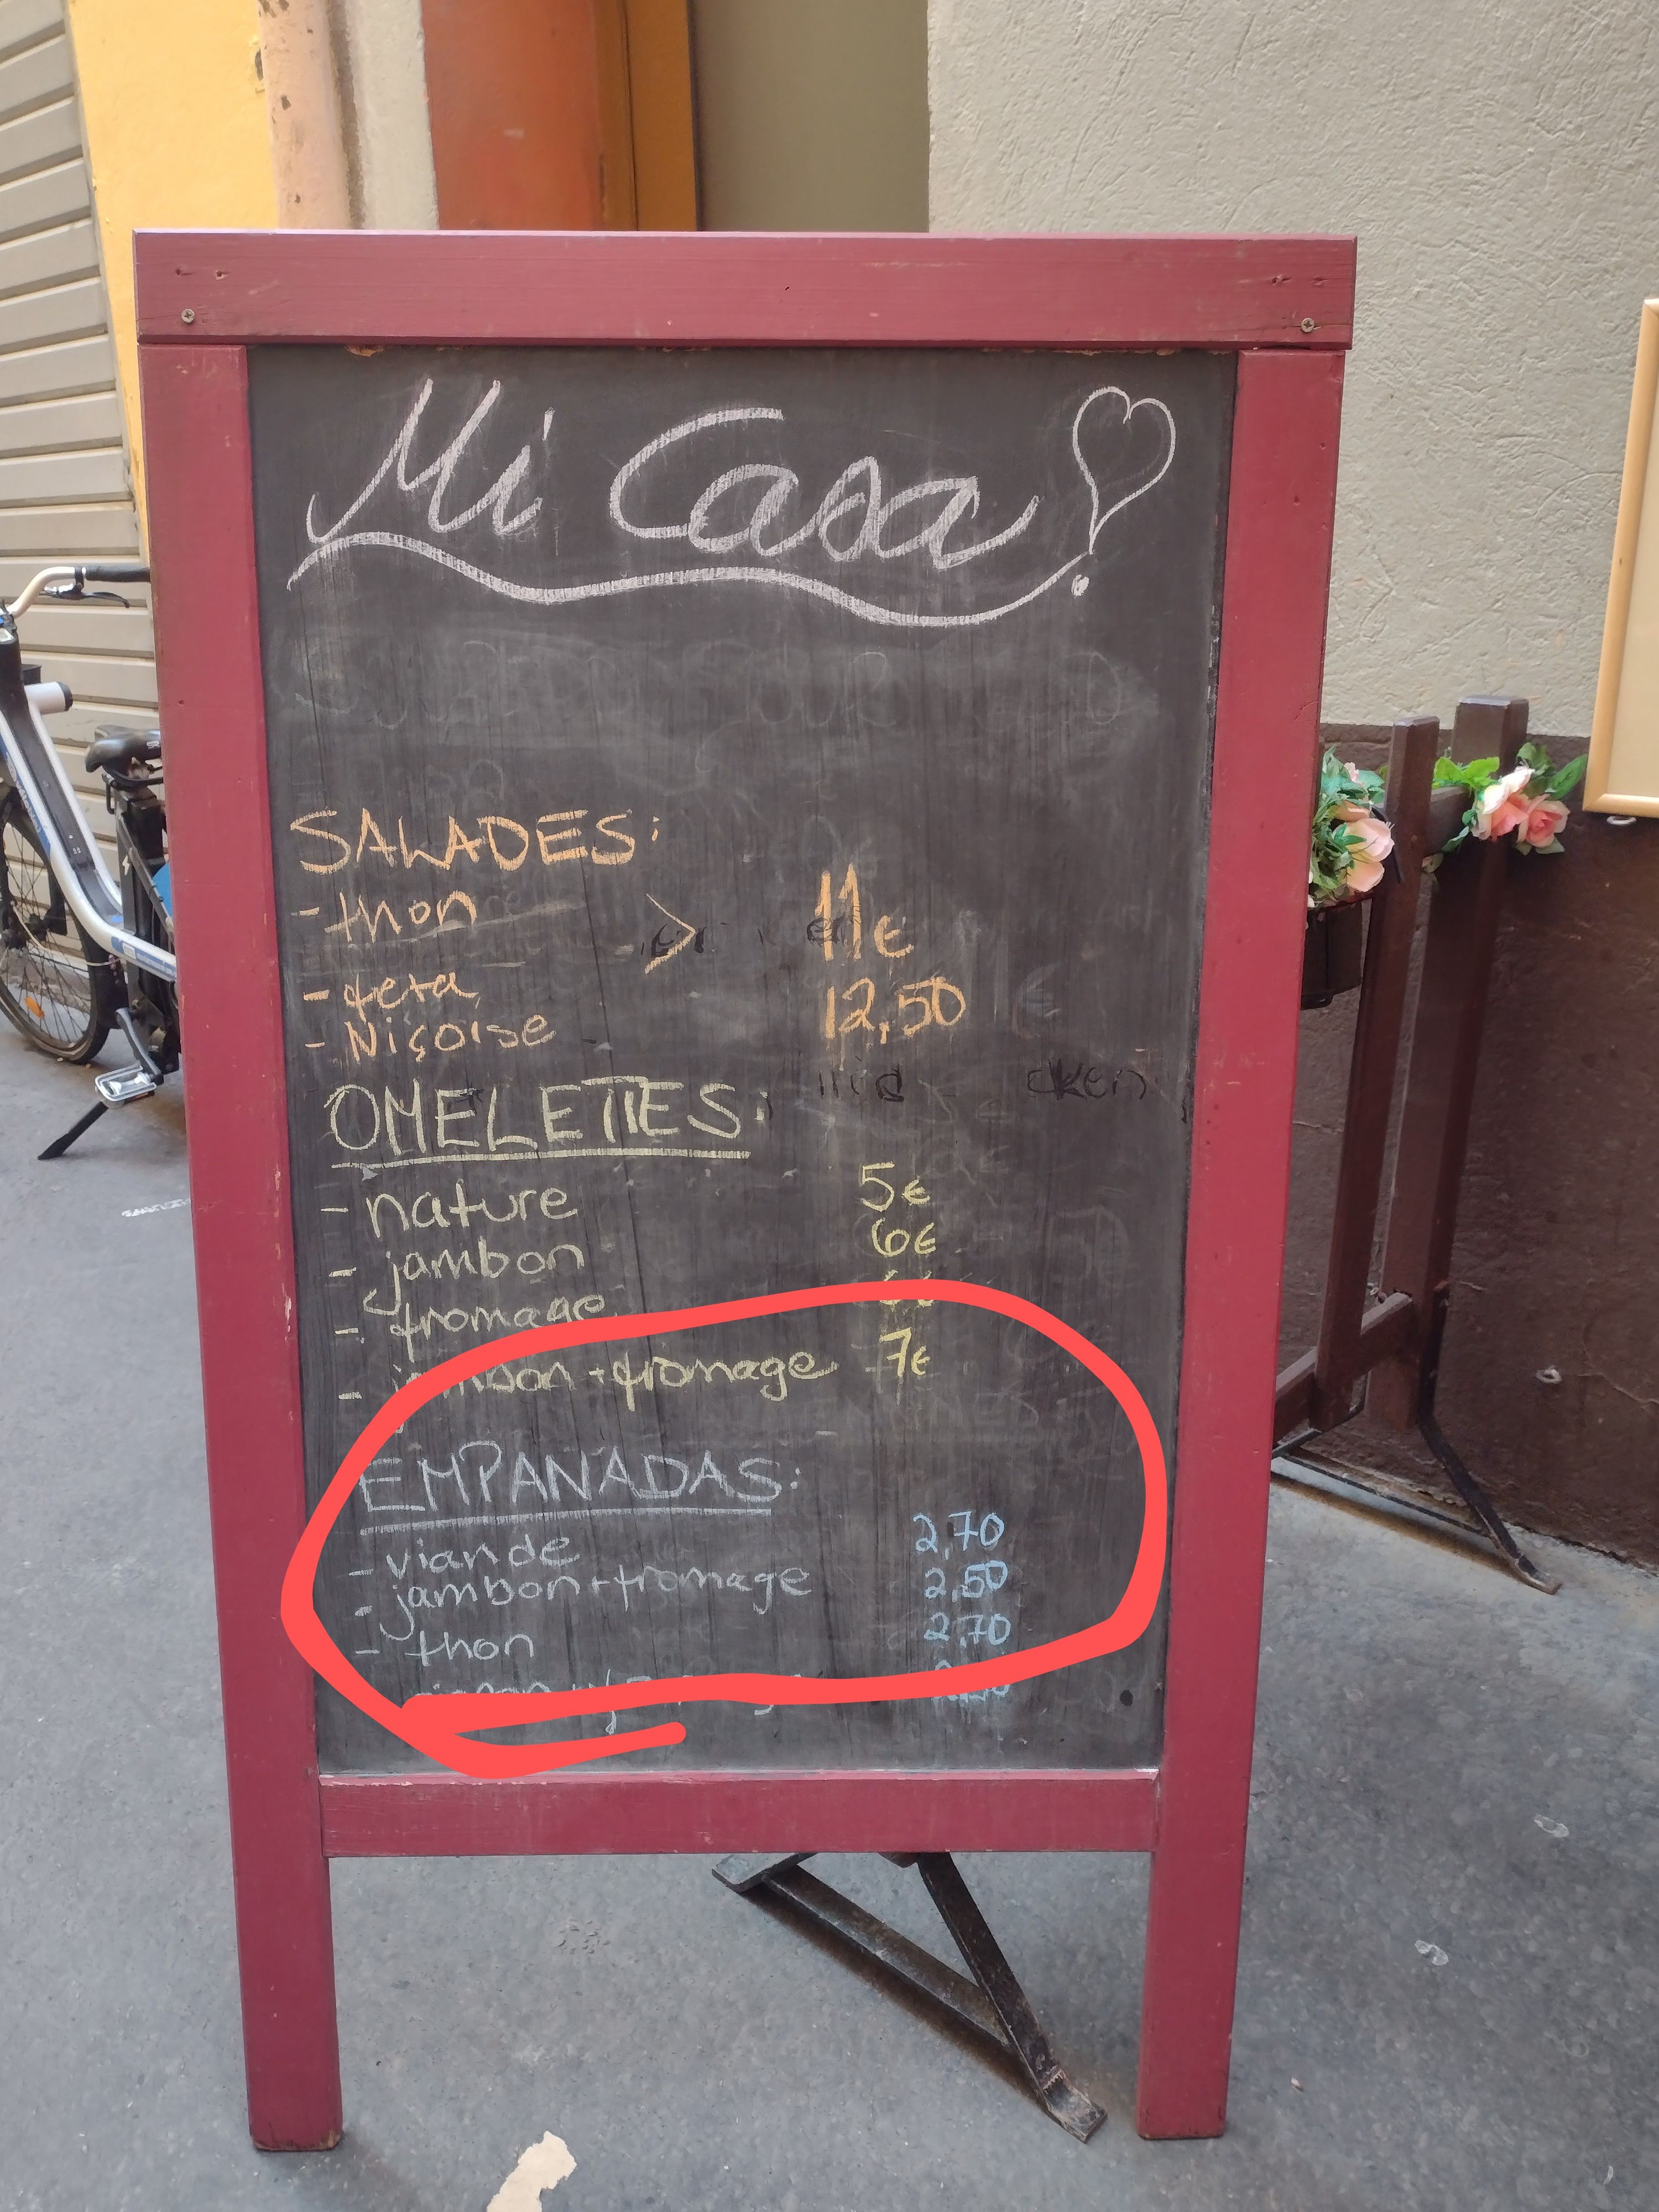 Mi Casa
SALADES:
- thon > 11€
- feta
- Niçoise 12,50
OMELETTES:
- nature 5€
- jambon 6€
- fromage 6€
- jambon + fromage 7€
EMPANADAS:
- viande 2,70
- jambon + fromage 2,50
- thon 2,70